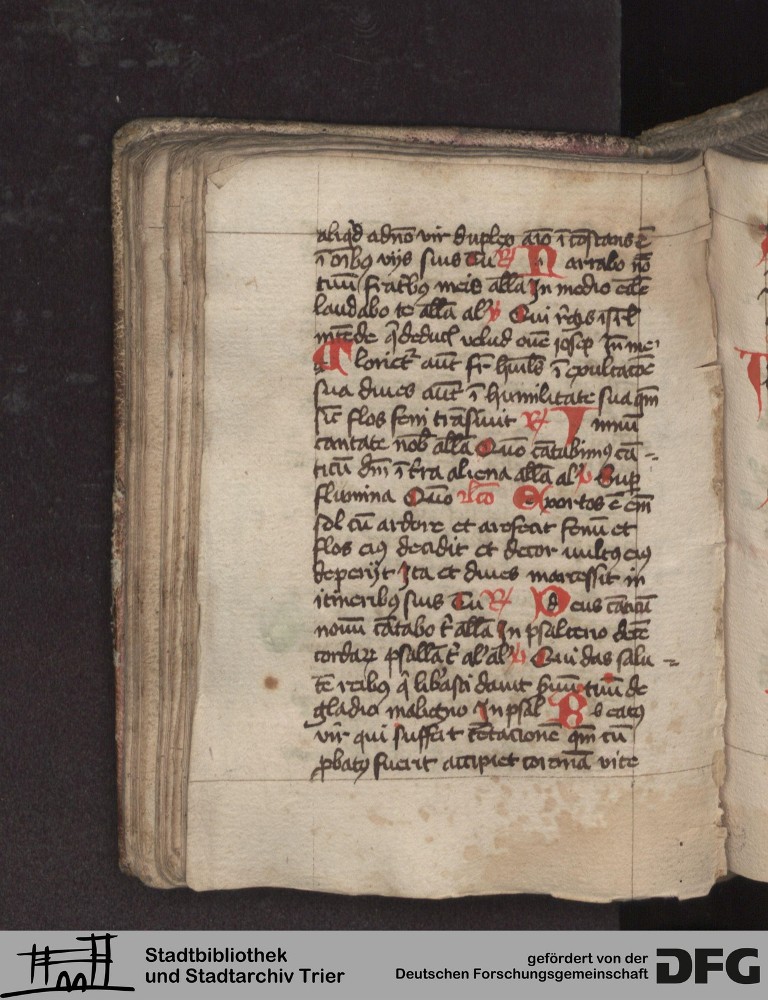 aliqd a dño vir duplex aĩo ĩ cõstans ẽ
ĩ oĩbus vijs suis Tu R Narrabo nõ
tuũ fratribus meis alla In medio eccẽ
laudabo te alla al' V Qui regis isrl
intẽde q deducis velud ouẽ ioseph In me
Gloriet aut fr hũilis ĩ exultacõe
sua diues aut ĩ humilitate sua qm
sic flos feni trãsiuit R Imnũ
cantate nob alla Quõ cãtabimus cã
ticũ dni ĩ tra aliena alla al' V Sup
flumina Quõ Exortus ẽ em
sol cũ ardore et arefecit fenũ et
flos eius decidit et decor uultus eius
deperijt Ita et diues marcessit in
itineribus suis Tu R Deus cãticũ
nouũ cãtabo t alla In psalterio dece
cordar psallã t al' al' V Qui das salu
tẽ regibus q libasti dauit seruũ tuũ de
gladio maligno In psal Beatus
vir qui suffert tẽtacionẽ qm cũ
probatus fuerit accipiet coronã vite
Stadtbibliothek
und Stadtarchiv Trier
gefördert von der
Deutschen Forschungsgemeinschaft
DFG